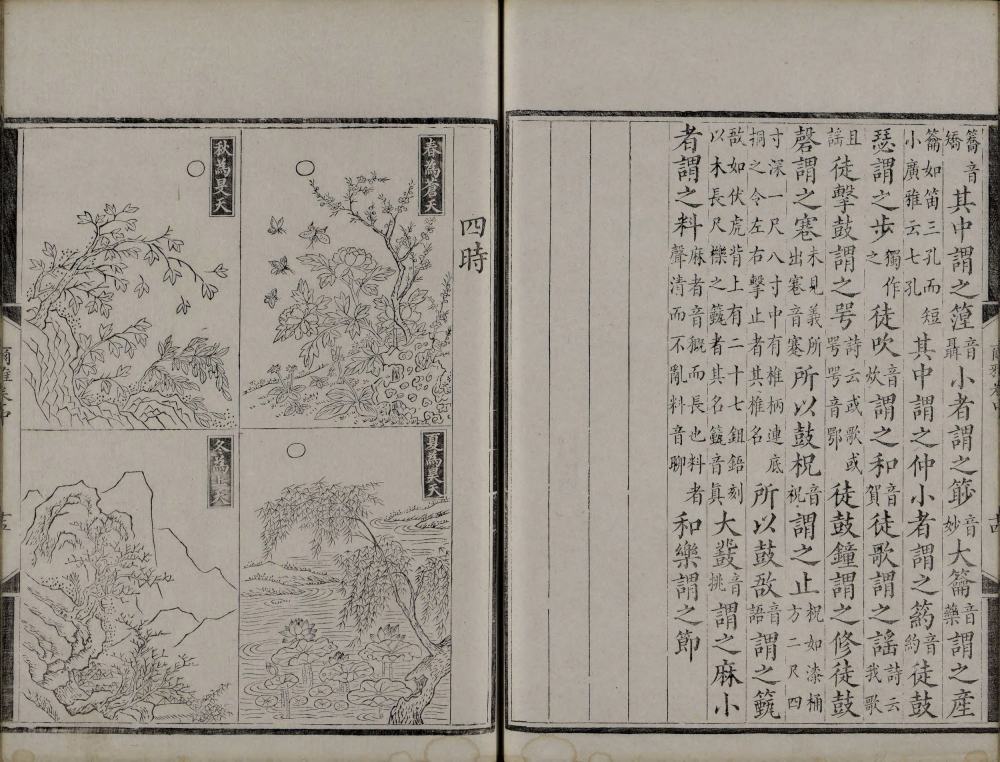 簥音矯其中謂之篞音聶小者謂之篎音妙大籥音藥謂之產
籥如笛三孔而短小廣雅云七孔其中謂之仲小者謂之箹音約徒鼓
瑟謂之步獨作之徒吹音炊謂之和音賀徒歌謂之謠詩云我歌
且謠徒擊鼓謂之咢詩云或歌或咢咢音鄂徒鼓鐘謂之修徒鼓
磬謂之寋未見義所出寋音蹇所以鼓柷音祝謂之止柷如漆桶方二尺四
寸深一尺八寸中有椎柄連底挏之令左右擊止者其椎名所以鼓敔音語謂之籈
敔如伏虎背上有二十七鉏鋙刻以木長尺櫟之籈者其名籈音真大鼗音挑謂之麻小
者謂之料麻者音概而長也料者聲清而不亂料音聊和樂謂之節
四時
春為蒼天
夏為昊天
秋為旻天
冬為上天